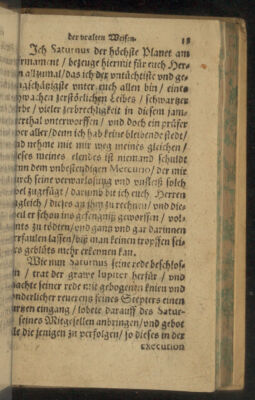 der vralten Weisen. 15
Ich Saturnus der höchste Planet am
rmament / bezeuge hiermit für euch Herr
n allzumal / das ich der vntüchtigst vnd ge
gschätzigste vnter euch allen bin / eines
hwachen zerstörlichen Leibes / schwartzer
rbe / vieler zerbrechligkeit in diesem jam
erthal vnterworffen / vnd doch ein prüfer
wer aller / denn ich hab keine bleibende stedt /
nd nehme mit mir weg meines gleichen /
ieses meines elendes ist niemand schuldt
nn dem vnbestendigen Mercurio / der mir
urch seine verwarlosung vnd vnfleiß solch
bel zugefügt / darumb bit ich euch Herren
gleich / dieses an jhm zu rechnen / vnd die
eil er schon ins gefengniß geworffen / vol
nts zu tödten / vnd gantz vnd gar darinnen
rfaulen lassen / biß man keinen tropffen sei
s geblüts mehr erkennen kan.
Wie nun Saturnus seine rede beschlos
n / trat der grawe Iupiter herfür / vnd
achte seiner rede mit gebogenen knien vnd
nderlicher reuerens seines Scepters einen
urtzen eingang / lobete darauff des Satur-
seines Mitgesellen anbringen / vnd gebot
le die jenigen zu verfolgen / so dieses in der
execution